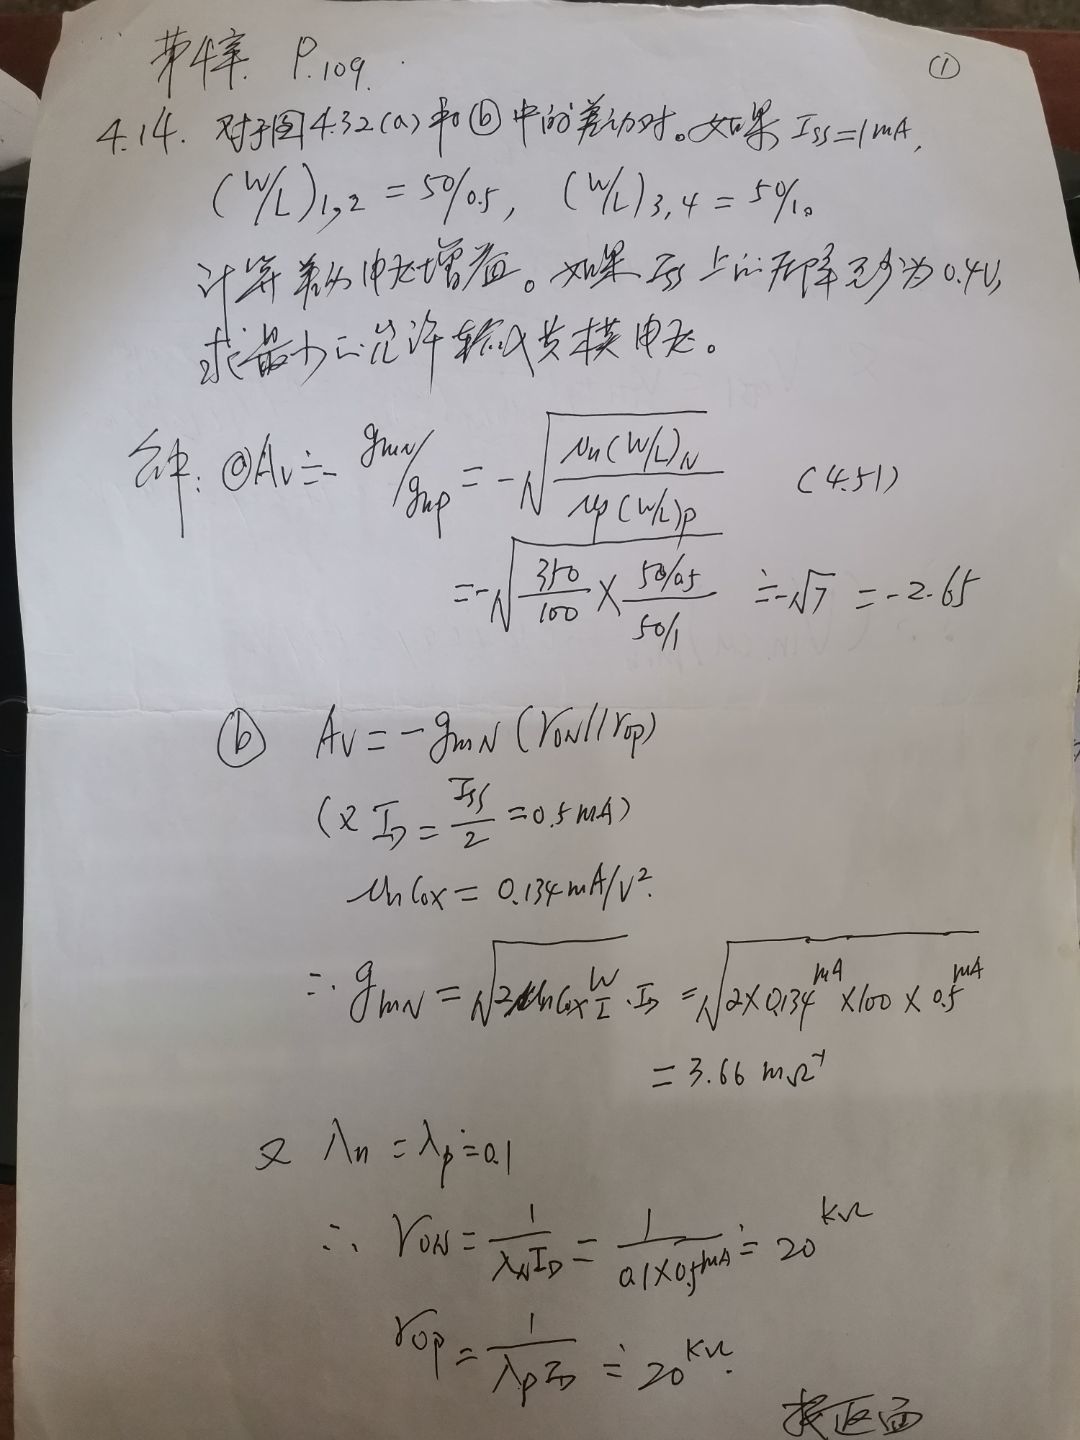 第4章 P.109.
①
4.14. 对于图4.32(a)和ⓑ中的差动对。如果 Iss=1mA,
(W/L)1,2 = 50/0.5, (W/L)3,4 = 50/1。
计算差动电压增益。如果Iss上的压降至少为0.4V,
求最小的允许输入共模电压。
解: ⓐAv≐- gmN/gmp = -√(μn(W/L)N / μp(W/L)p) (4.51)
=-√(350/100 × (50/0.5)/(50/1)) ≐-√7 = -2.65
ⓑ Av = -gmN (roN//rop)
(又 ID = Iss/2 = 0.5mA)
μnCox = 0.134mA/V².
∴ gmN = √(2μnCox W/L · ID) = √(2×0.134mA ×100 × 0.5mA)
= 3.66 mΩ⁻¹
又 λn = λp ≐ 0.1
∴ roN = 1/(λN ID) = 1/(0.1×0.5mA) ≐ 20 KΩ
rop = 1/(λp ID) ≐ 20 KΩ.
接返面